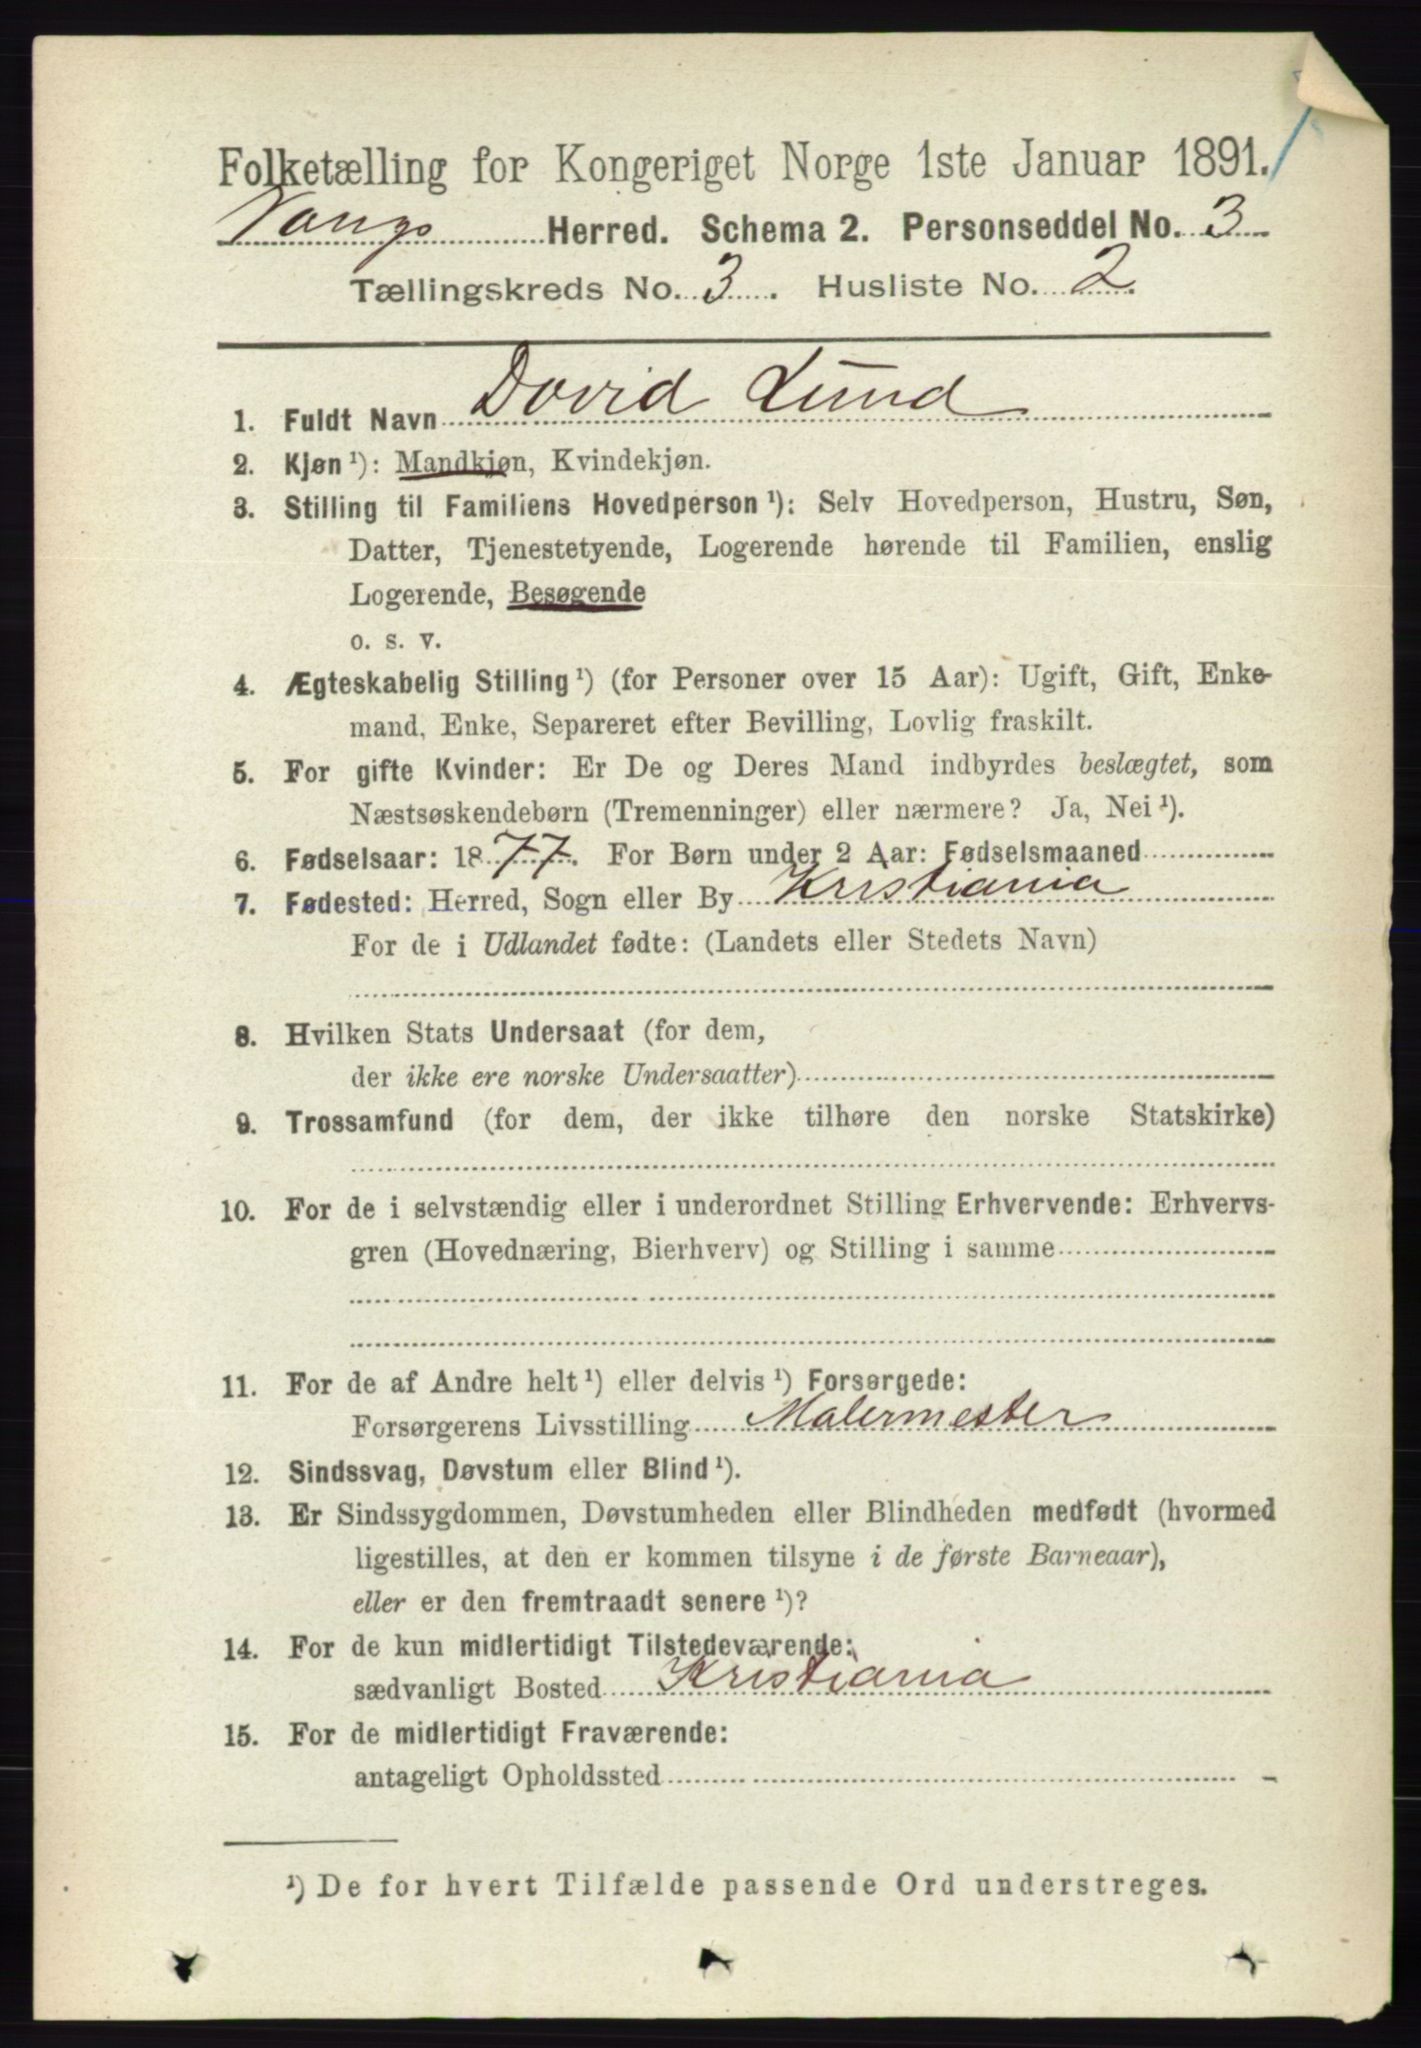 Folketælling for Kongeriget Norge 1ste Januar 1891.
Vangs Herred. Schema 2. Personseddel No. 3
Tællingskreds No. 3. Husliste No. 2.
1. Fuldt Navn David Lund
2. Kjøn ¹): Mandkjøn, Kvindekjøn.
3. Stilling til Familiens Hovedperson ¹): Selv Hovedperson, Hustru, Søn,
Datter, Tjenestetyende, Logerende hørende til Familien, enslig
Logerende, Besøgende
o. s. v.
4. Ægteskabelig Stilling ¹) (for Personer over 15 Aar): Ugift, Gift, Enke-
mand, Enke, Separeret efter Bevilling, Lovlig fraskilt.
5. For gifte Kvinder: Er De og Deres Mand indbyrdes beslægtet, som
Næstsøskendebørn (Tremenninger) eller nærmere? Ja, Nei ¹).
6. Fødselsaar: 1877. For Børn under 2 Aar: Fødselsmaaned
7. Fødested: Herred, Sogn eller By Kristiania
For de i Udlandet fødte: (Landets eller Stedets Navn)
8. Hvilken Stats Undersaat (for dem,
der ikke ere norske Undersaatter)
9. Trossamfund (for dem, der ikke tilhøre den norske Statskirke)
10. For de i selvstændig eller i underordnet Stilling Erhvervende: Erhvervs-
gren (Hovednæring, Bierhverv) og Stilling i samme
11. For de af Andre helt ¹) eller delvis ¹) Forsørgede:
Forsørgerens Livsstilling Malermester
12. Sindssvag, Døvstum eller Blind ¹).
13. Er Sindssygdommen, Døvstumheden eller Blindheden medfødt (hvormed
ligestilles, at den er kommen tilsyne i de første Barneaar),
eller er den fremtraadt senere ¹)?
14. For de kun midlertidigt Tilstedeværende:
sædvanligt Bosted Kristiania
15. For de midlertidigt Fraværende:
antageligt Opholdssted
¹) De for hvert Tilfælde passende Ord understreges.